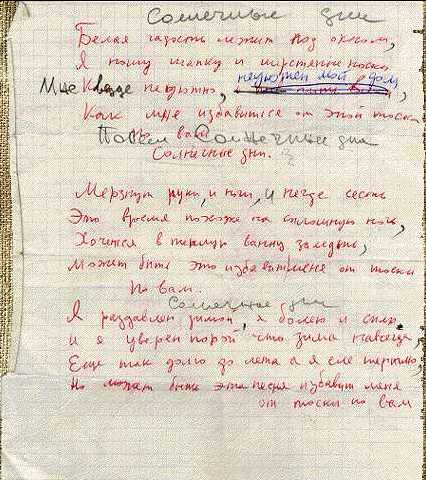 Солнечные дни
Белая гадость лежит под окном,
Я ношу шапку и шерстяные носки
неуютен мой дом,
Мне везде неуютно,
Как мне избавиться от этой тоски
По вам Солнечные дни
Солнечные дни.
Мерзнут руки, и ноги, и негде сесть
Это время похоже на сплошную ночь,
Хочется в теплую ванну залезть,
Может быть это избавит меня от тоски
По вам.
Солнечные дни
Я раздавлен зимой, я болею и сплю.
И я уверен порой что зима навсегда,
Еще так долго до лета а я еле терплю,
Но может быть эта песня избавит меня
от тоски по вам